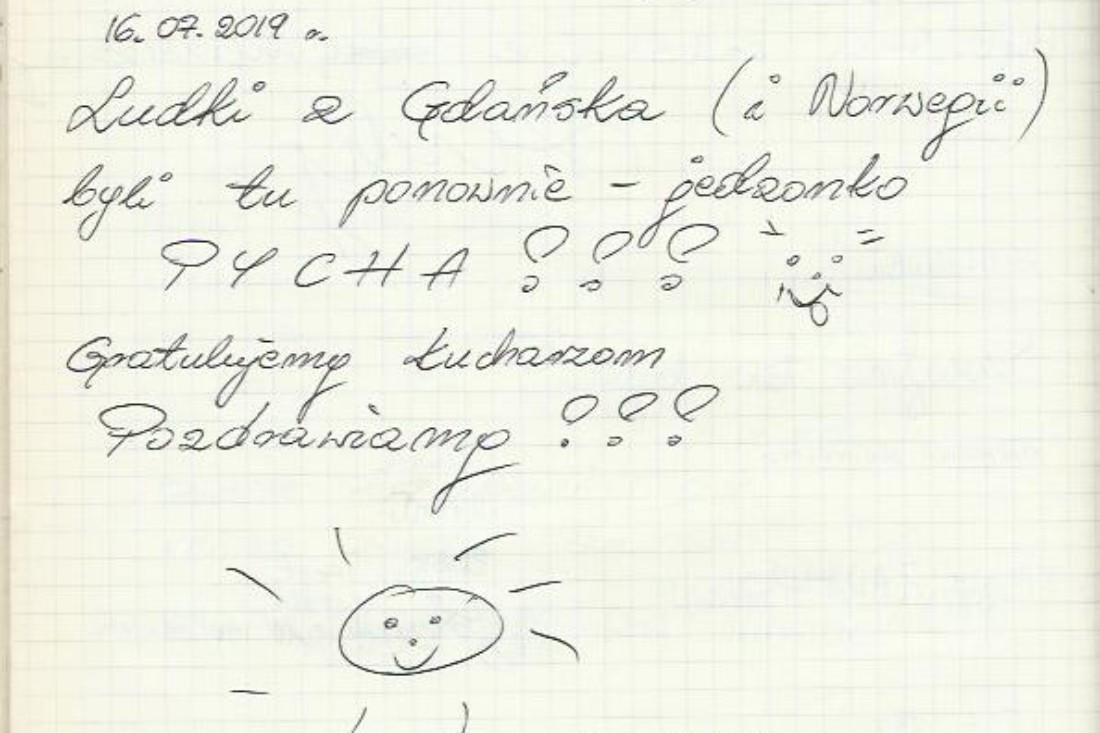 16.07.2019 r.
Ludki z Gdańska (i Norwegii)
byli tu ponownie - jedzonko
PYCHA !!!
Gratulujemy kucharzom
Pozdrawiamy !!!